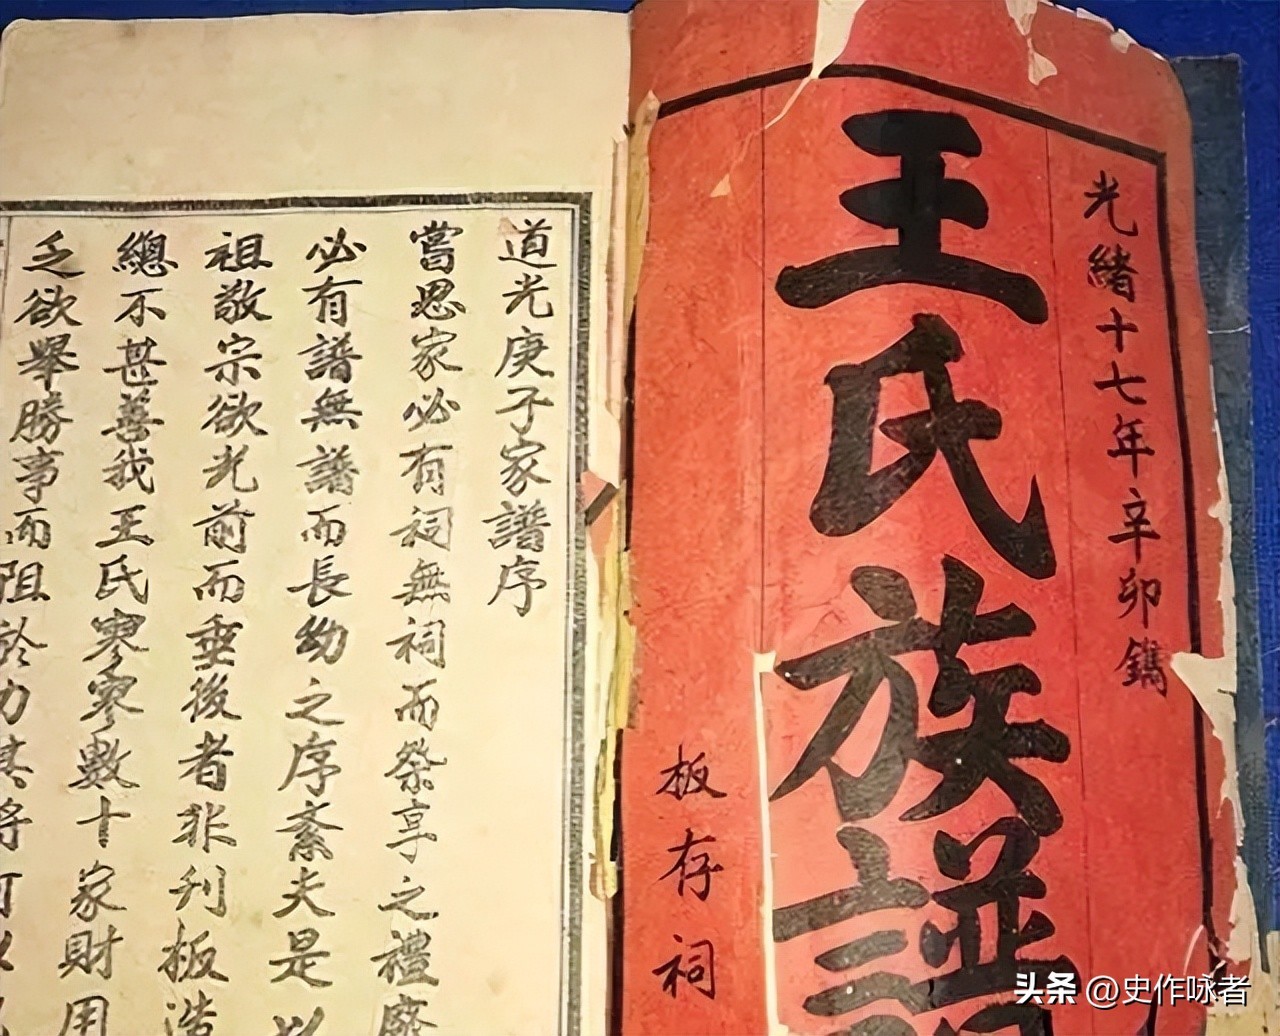 光緒十七年辛卯鐫
王氏族譜
板存祠
道光庚子家譜序
嘗思家必有祠無祠而祭享之禮廢
必有譜無譜而長幼之序紊夫是以
祖敬宗欲光前而垂後者非刋板造
總不甚善我王氏寥寥數十家財用
乏欲舉勝事而阻於力其將
头条 @史作咏者